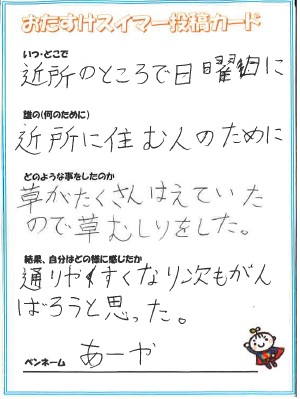 おたすけスイマー投稿カード
いつ・どこで
近所のところで日曜日に
誰の(何のために)
近所に住む人のために
どのような事をしたのか
草がたくさんはえていた
ので草むしりをした。
結果、自分はどの様に感じたか
通りやすくなり次もがん
ばろうと思った。
ペンネーム
あーや